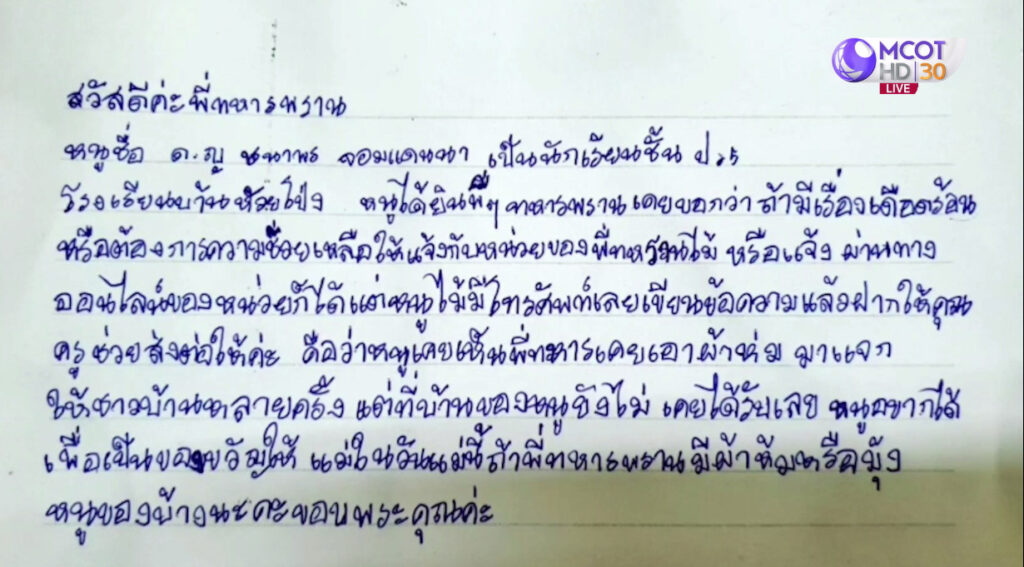 MCOT
HD 30
LIVE
สวัสดีค่ะพี่ทหารพราน
หนูชื่อ ด.ญ ชนาพร จอมแดนนา เป็นนักเรียนชั้น ป.5
โรงเรียนบ้านห้วยโป่ง หนูได้ยินพี่ๆ ทหารพรานเคยบอกว่าถ้ามีเรื่องเดือดร้อน
หรือต้องการความช่วยเหลือให้แจ้งกับหน่วยของพี่ทหาร หรือแจ้ง ผ่านทาง
ออนไลน์ของหน่วยก็ได้แต่หนูไม่มีโทรศัพท์เลยเขียนข้อความแล้วฝากให้คุณ
ครูช่วยส่งต่อให้ค่ะ คือว่าหนูเคยเห็นพี่ทหารเคยเอาผ้าห่ม มาแจก
ให้ชาวบ้านหลายครั้ง แต่ที่บ้านของหนูยังไม่ เคยได้รับเลย หนูอยากได้
เพื่อเป็นของขวัญให้ แม่ในวันแม่นี้ถ้าพี่ทหารพรานมีผ้าห่มหรือมุ้ง
หนูขอบ้างนะคะขอบพระคุณค่ะ